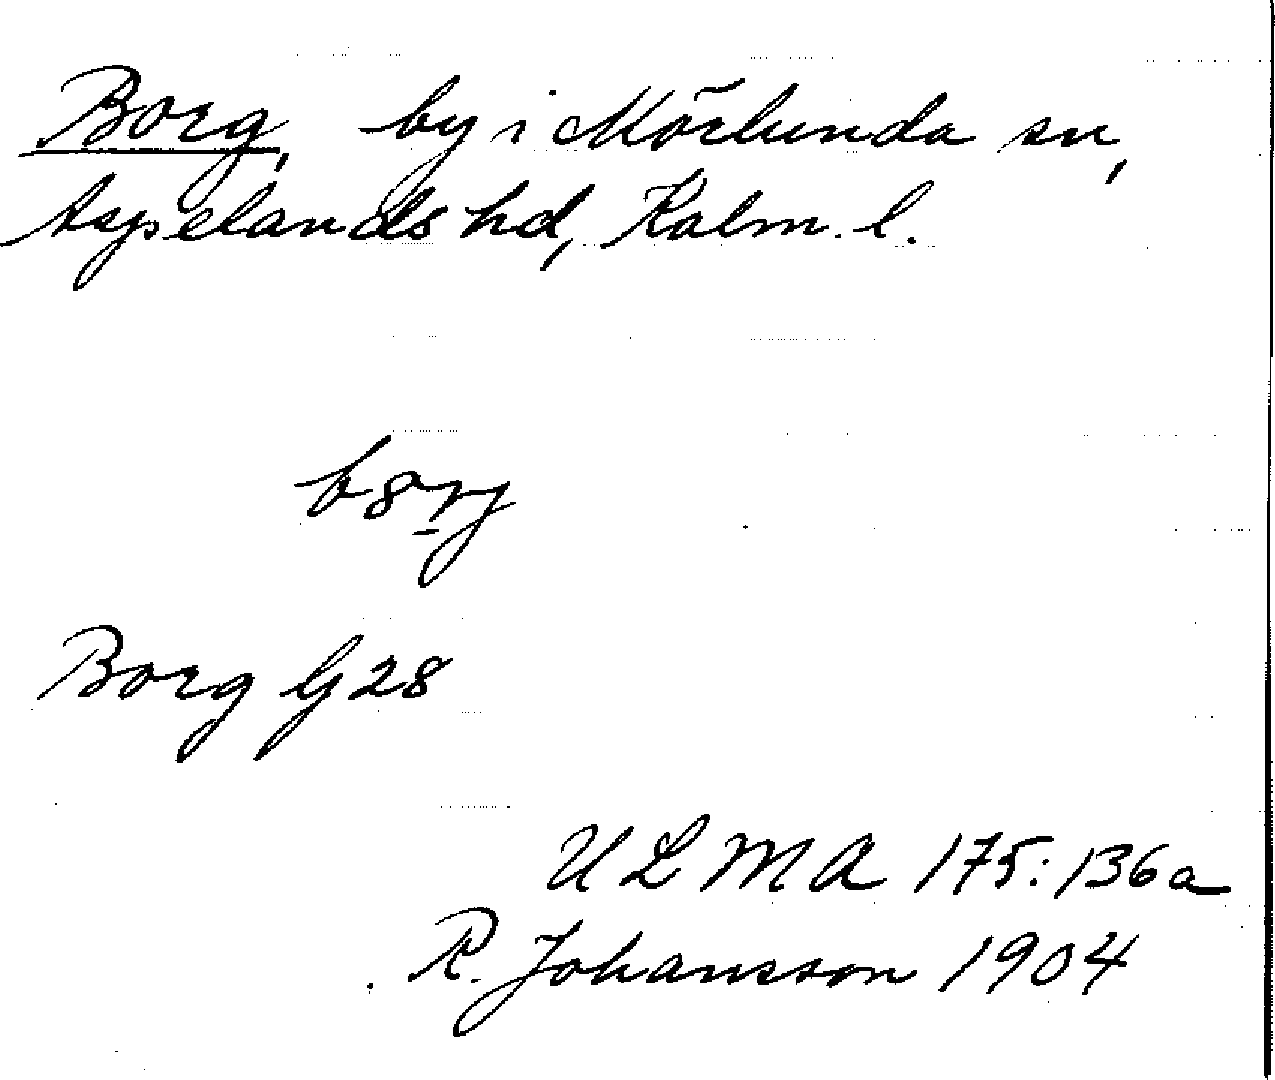 Borg, by i Mörlunda sn,
Aspelands hd, Kalm. l.
b8rj
Borg G 28
ULMA 175:136a
R. Johansson 1904